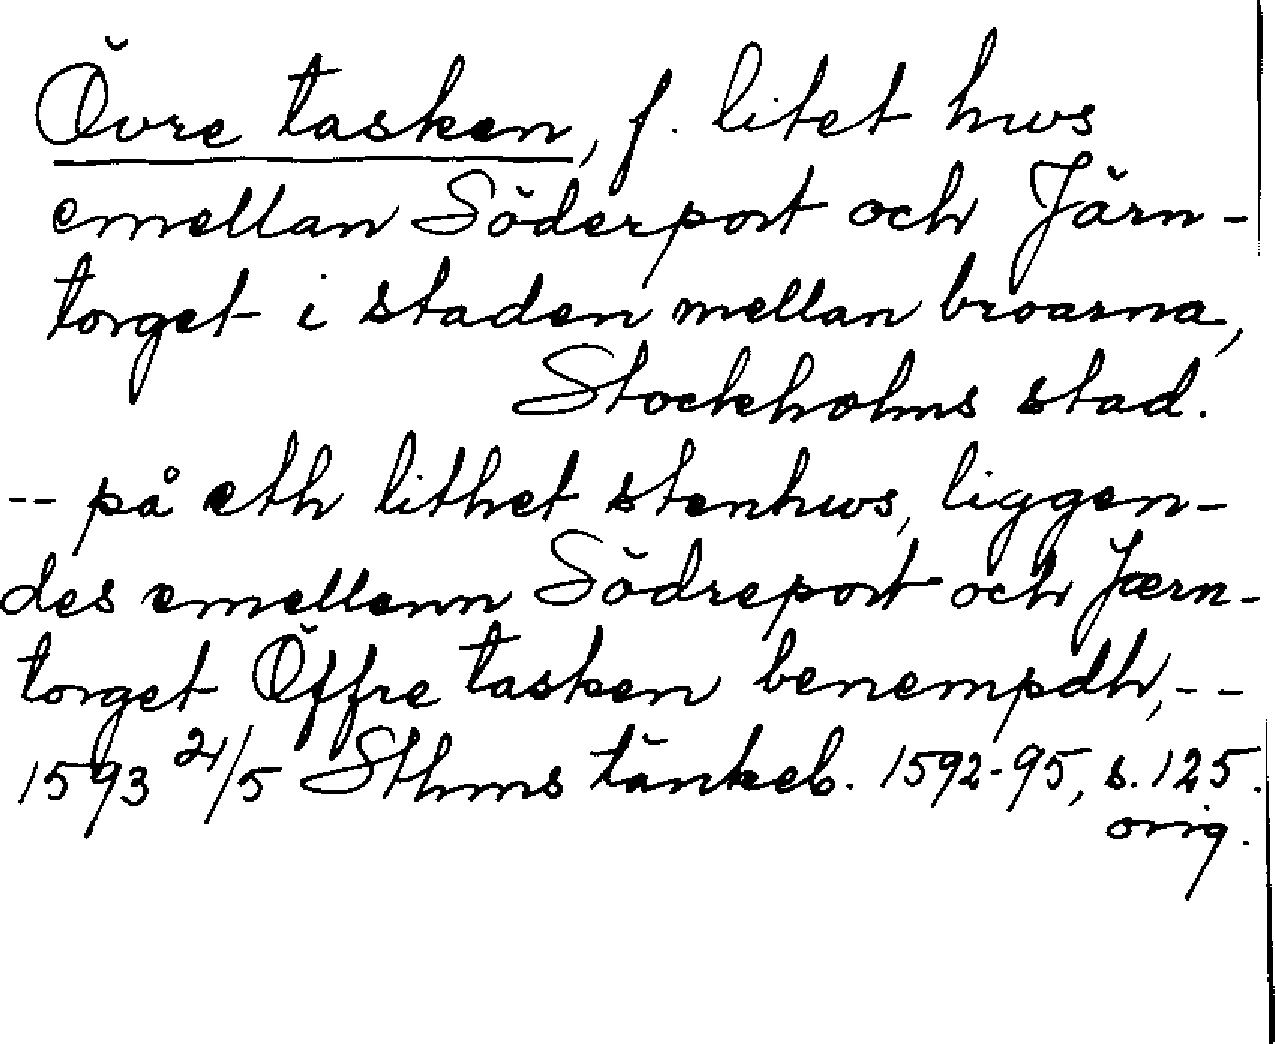 Övre tasken, f. litet hus
emellan Söderport och Järn-
torget i staden mellan broarna,
Stockholms stad.
-- på eth lithet stenhws, liggen-
des emellenn Södreport och Jærn-
torget Öffre tasken benempdh, --
1593 21/5 Sthms tänkeb. 1592-95, s. 125.
orig.